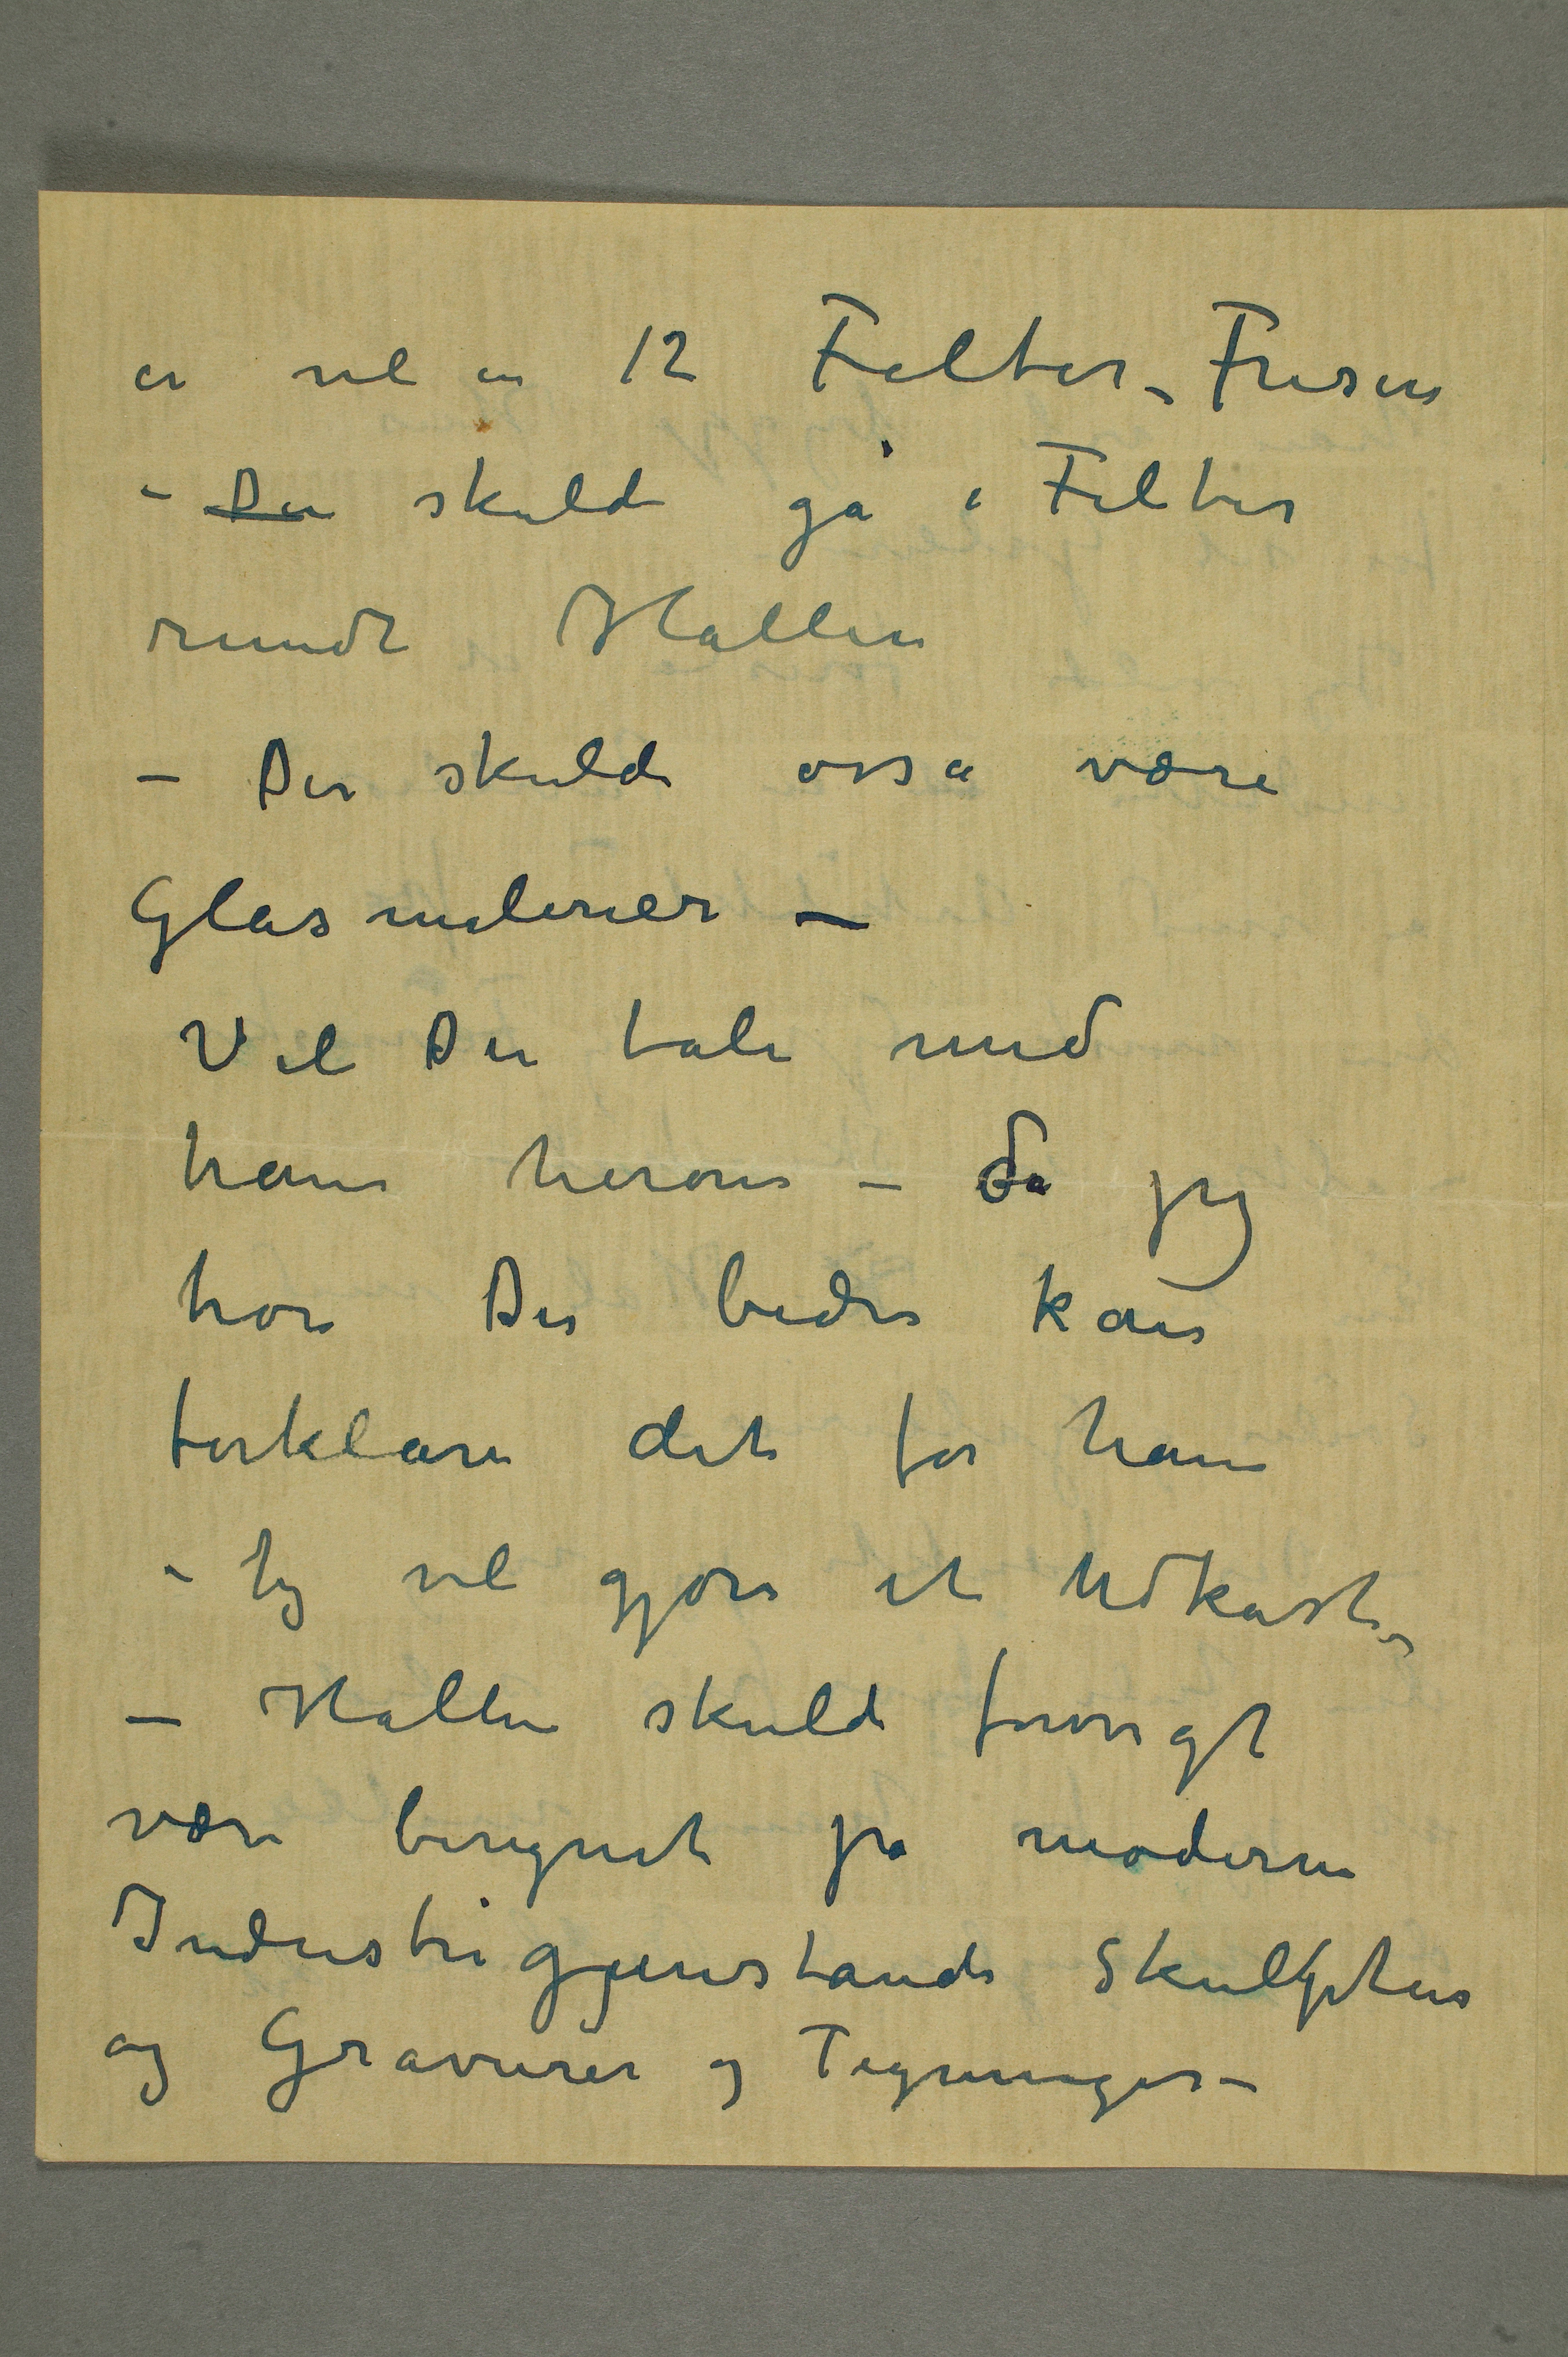 er vel en 12 Felter – Frisen
– Den skulde gå i Felter
rundt Hallen
– Der skulde osså være
Glasmalerier –
Vil De tale med
ham herom – da jeg
tror De bedre kan
forklare det for ham
– Jeg vil gjøre et Udkast –
– Hallen skulde forøvrigt
være beregnet på moderne
Industrigjenstande Skulptur
og Gravurer og Tegninger –